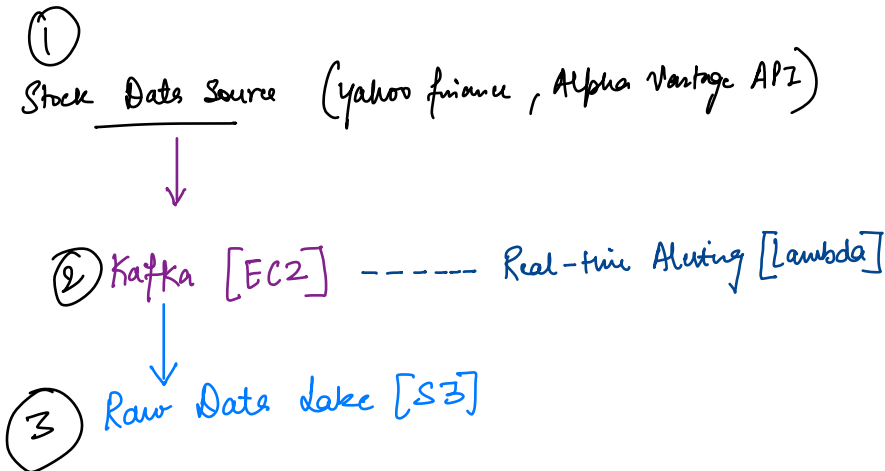 ①
Stock Data Source (yahoo finance, Alpha Vantage API)
② Kafka [EC2] ------ Real-time Alerting [Lambda]
③ Raw Data Lake [S3]